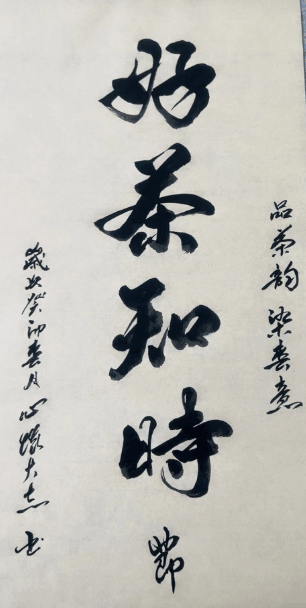 品茶韵 染春意
好茶知時節
歲次癸卯春月 心懷大志 书